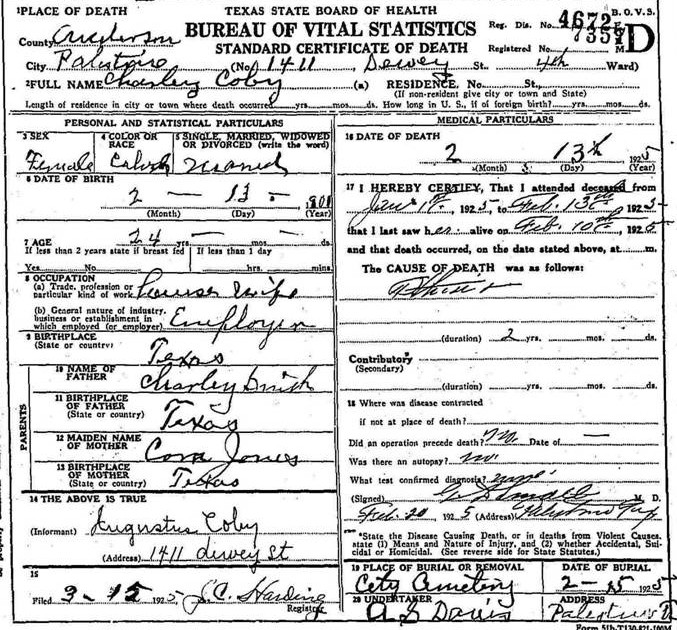 1PLACE OF DEATH
TEXAS STATE BOARD OF HEALTH
B.O.V.S.
BUREAU OF VITAL STATISTICS
STANDARD CERTIFICATE OF DEATH
Reg. Dis. No. 4672
Registered No. 7357 D
County Anderson
City Palestine (No. 1411 Dewey St. 4th Ward)
2FULL NAME Charley Coby (a) RESIDENCE. No. St.,
(If non-resident give city or town and State)
Length of residence in city or town where death occurred yrs. mos. ds. How long in U. S., if of foreign birth? yrs. mos. ds.
PERSONAL AND STATISTICAL PARTICULARS
3 SEX
4 COLOR OR RACE
5 SINGLE, MARRIED, WIDOWED OR DIVORCED (write the word)
Female
6 DATE OF BIRTH
2 — 13 - 1901
(Month) (Day) (Year)
7 AGE
24 yrs. mos. ds.
If less than 2 years state if breast fed
If less than 1 day
Yes No
hrs. mins.
8 OCCUPATION
(a) Trade, profession or particular kind of work House Wife
(b) General nature of industry, business or establishment in which employed (or employer)
9 BIRTHPLACE
(State or country)
Texas
PARENTS
10 NAME OF FATHER
Charley Smith
11 BIRTHPLACE OF FATHER
(State or country)
Texas
12 MAIDEN NAME OF MOTHER
Cora Jones
13 BIRTHPLACE OF MOTHER
(State or country)
Texas
14 THE ABOVE IS TRUE
(Informant) Augustus Coby
(Address) 1411 dewey St
15
Filed 3-15 1925 J.C. Harding
Registrar
MEDICAL PARTICULARS
16 DATE OF DEATH
2 13th 1925
(Month) (Day) (Year)
17 I HEREBY CERTIFY, That I attended deceased from
Jan 1st, 1925, to Feb. 13th 1925
that I last saw her alive on Feb. 10th 1925
and that death occurred, on the date stated above, at m.
The CAUSE OF DEATH was as follows:
(duration) 2 yrs. mos. ds.
Contributory
(Secondary)
(duration) yrs. mos. ds.
18 Where was disease contracted
if not at place of death?
Did an operation precede death? no Date of —
Was there an autopsy? no
What test confirmed diagnosis?
(Signed) M. D.
Feb. 20 1925 (Address) Palestine Tex
*State the Disease Causing Death, or in deaths from Violent Causes,
state (1) Means and Nature of Injury, and (2) whether Accidental, Sui-
cidal or Homicidal. (See reverse side for State Statutes.)
19 PLACE OF BURIAL OR REMOVAL
DATE OF BURIAL
City Cemetery
2-15 1925
20 UNDERTAKER
ADDRESS
A S Davis
Palestine
Form 51b-T130-821-100M